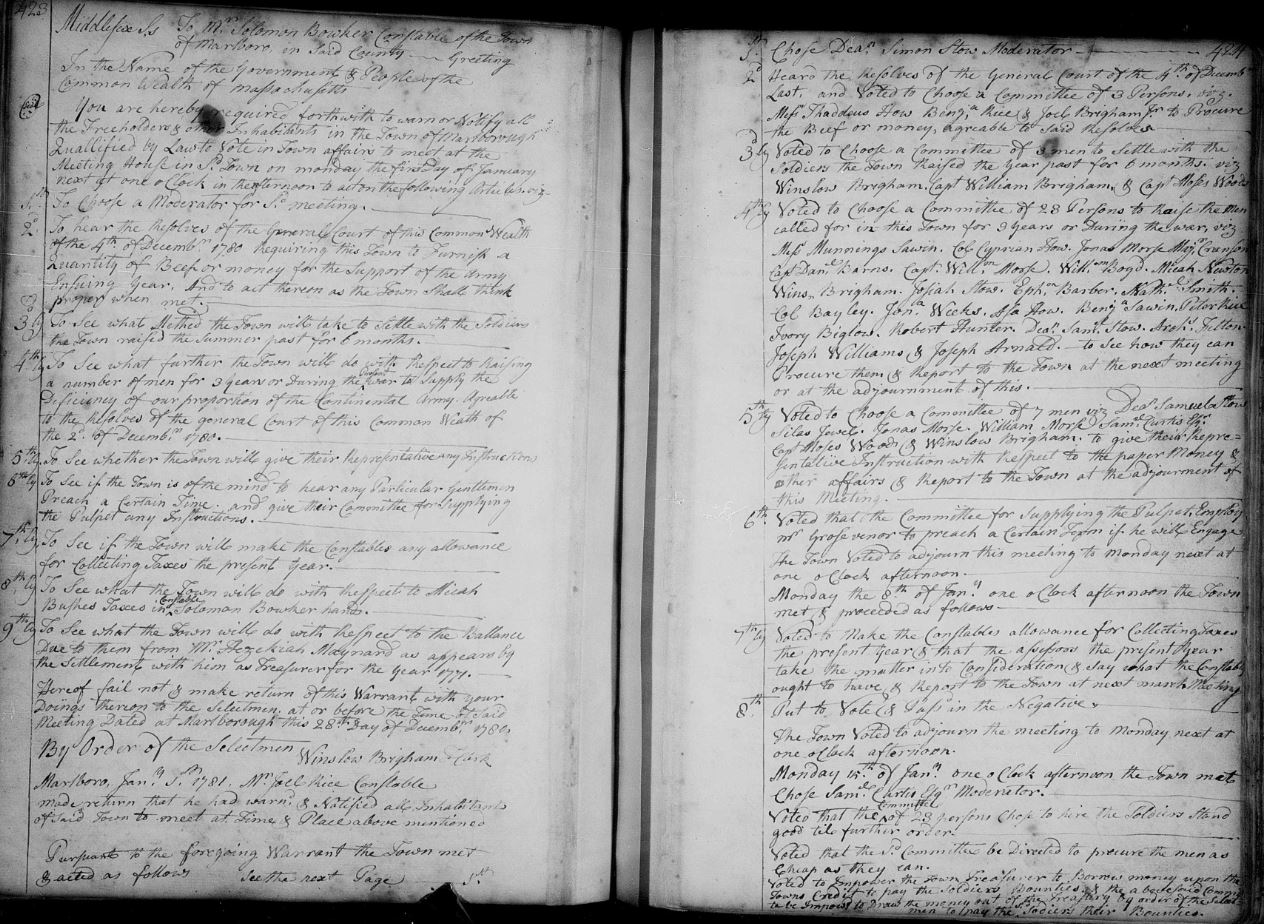 423
Middlesex Ss To Mr. Solomon Bowker Constable of the Town
of Marlboro, in Said County Greeting
In the Name of the Government & People of the
Common Wealth of Massachusetts
You are hereby required forthwith to warn or Notify all
the Freeholders & other Inhabitants in the Town of Marlborough
Quallified by Law to Vote in Town affairs to meet at the
Meeting House in Sd. Town on monday the first Day of January
next at one o Clock in the afternoon to act on the following Articles viz
1st To Choose a Moderator for Sd. meeting.
2d. To hear the Resolves of the General Court of this Common Wealth
of the 4th. of Decembr. 1780 Requiring this Town to Furnish a
Quantity of Beef or money for the Support of the Army
Ensuing Year. And to act thereon as the Town Shall think
proper when met.
3dly To See what Method the Town will take to Settle with the Soldiers
the Town raised the Summer past for 6 months.
4thly To See what further the Town will do with Respect to Raising
a number of men for 3 years or During the present war to Supply the
Deficiency of our proportion of the Continental Army. Agreable
to the Resolves of the general Court of this Common Wealth of
the 2d. of Decembr. 1780.
5thly To See whether the Town will give their Representative any Instructions
6thly To See if the Town is of the mind to hear any Particular Gentlemen
Preach a Certain Time and give their Committee for Supplying
the Pulpet any Instructions.
7thly To See if the Town will make the Constables any allowance
for Collecting Taxes the present Year.
8thly To See what the Town will do with Respect to Micah
Bushes Taxes in Constable Solomon Bowker hands.
9thly To See what the Town will do with Respect to the Ballance
Due to them from Mr. Hezekiah Maynard as appears by
the Settlement with him as Treasurer for the Year 1777.
Hereof fail not & make return of this Warrant with your
Doings thereon to the Selectmen, at or before the Time of Said
Meeting Dated at Marlborough this 28th Day of Decembr. 1780.
By Order of the Selectmen
Winslow Brigham Clerk
Marlboro, Janry 1st 1781. Mr. Joel Rice Constable
made return that he had warn'd & Notified all Inhabitants
of Said Town to meet at Time & Place above mentioned
Pursuant to the foregoing Warrant the Town met
& acted as follows See the next Page 1st
424
1st Chose Dean. Simon Stow Moderator
2d Heard the Resolves of the General Court of the 4th of Decembr
Last, and Voted to Choose a Committee of 3 Persons, viz
Messs Thaddeus How Benja Rice & Joel Brigham Jr to Procure
the Beef or money, agreable to Said Resolves
3dly Voted to Choose a Committee of 3 men to Settle with the
Soldiers the Town Raised the Year past for 6 months. viz
Winslow Brigham, Capt William Brigham, & Capt Moses Woods
4thly Voted to Choose a Committee of 23 Persons to Raise the Men
called for in this Town for 3 years or During the war, viz
Mess Munnings Sawin. Col. Cyprian How. Jonas Morse Cranson
Capt Danel Barns. Capt. Willm Morse. Willm Boyd. Micah Newton
Wins. Brigham. Josiah Stow. Ephm Barber. Nathel. Smith.
Col Bayley. Jona Weeks. Asa How. Benja Sawin. Peter Rice
Ivory Biglow. Robert Hunter. Dean. Saml. Stow. Arch. Felton
Joseph Williams & Joseph Arnald. to See how they can
Procure them & Report to the Town at the next meeting
or at the adjournment of this.
5thly Voted to Choose a Committee of 7 men viz Dean Samuel Stow
Silas Jewel. Jonas Morse. William Morse Saml Curtis Esqr.
Capt Moses Woods & Winslow Brigham. to give their Repre-
sentative Instruction with Respect to the paper Money &
other affairs & Report to the Town at the adjournment of
this Meeting.
6th. Voted that the Committee for Supplying the Pulpet, Employ
mr Grosvenor to preach a Certain Term if he will Engage
The Town Voted to adjourn this meeting to Monday next at
one o Clock afternoon.
Monday the 8th. of Janry one o Clock afternoon the Town
met & proceeded as follows
7thly Voted to Make the Constables allowance for Collecting Taxes
the present year & that the assessors the present Year
take the matter into Consideration & Say what the Constable
ought to have & Report to the Town at next march Meeting
8th Put to Vote & Pass'd in the Negative
The Town Voted to adjourn the meeting to Monday next at
one o Clock afternoon.
Monday 15th of Janry one o Clock afternoon the Town met
Chose Saml. Curtis Esqr Moderator.
Voted that the Committee of 23 persons Chose to hire the Soldiers Stand
good til further order.
Voted that the Sd. Committee be Directed to procure the men as
Cheap as they can.
Voted to Empower the Town Treasurer to Borrow money upon the
Towns Credit to pay the Soldiers Bounties, & the aboveSaid Comme
to be Impowrd to Draw the money out of the Treasury by order of the Select
men to pay the Sd. Soldiers their Bounties.